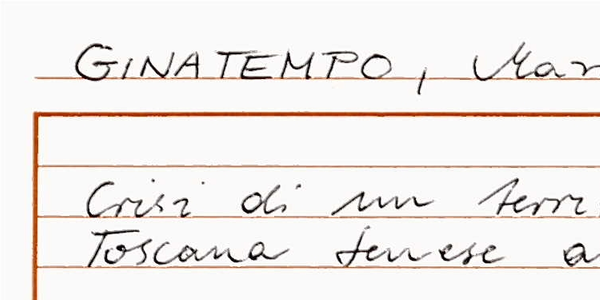 GINATEMPO, Mar
Crisi di un terri
Toscana senese a